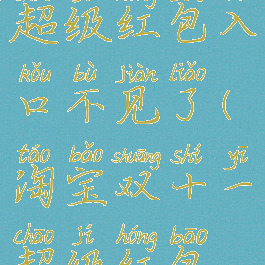 超级红包入
kǒu bù jiàn liǎo
口不见了(
táo bǎo shuāng shí yī
淘宝双十一
chāo jí hóng bāo
超级红包